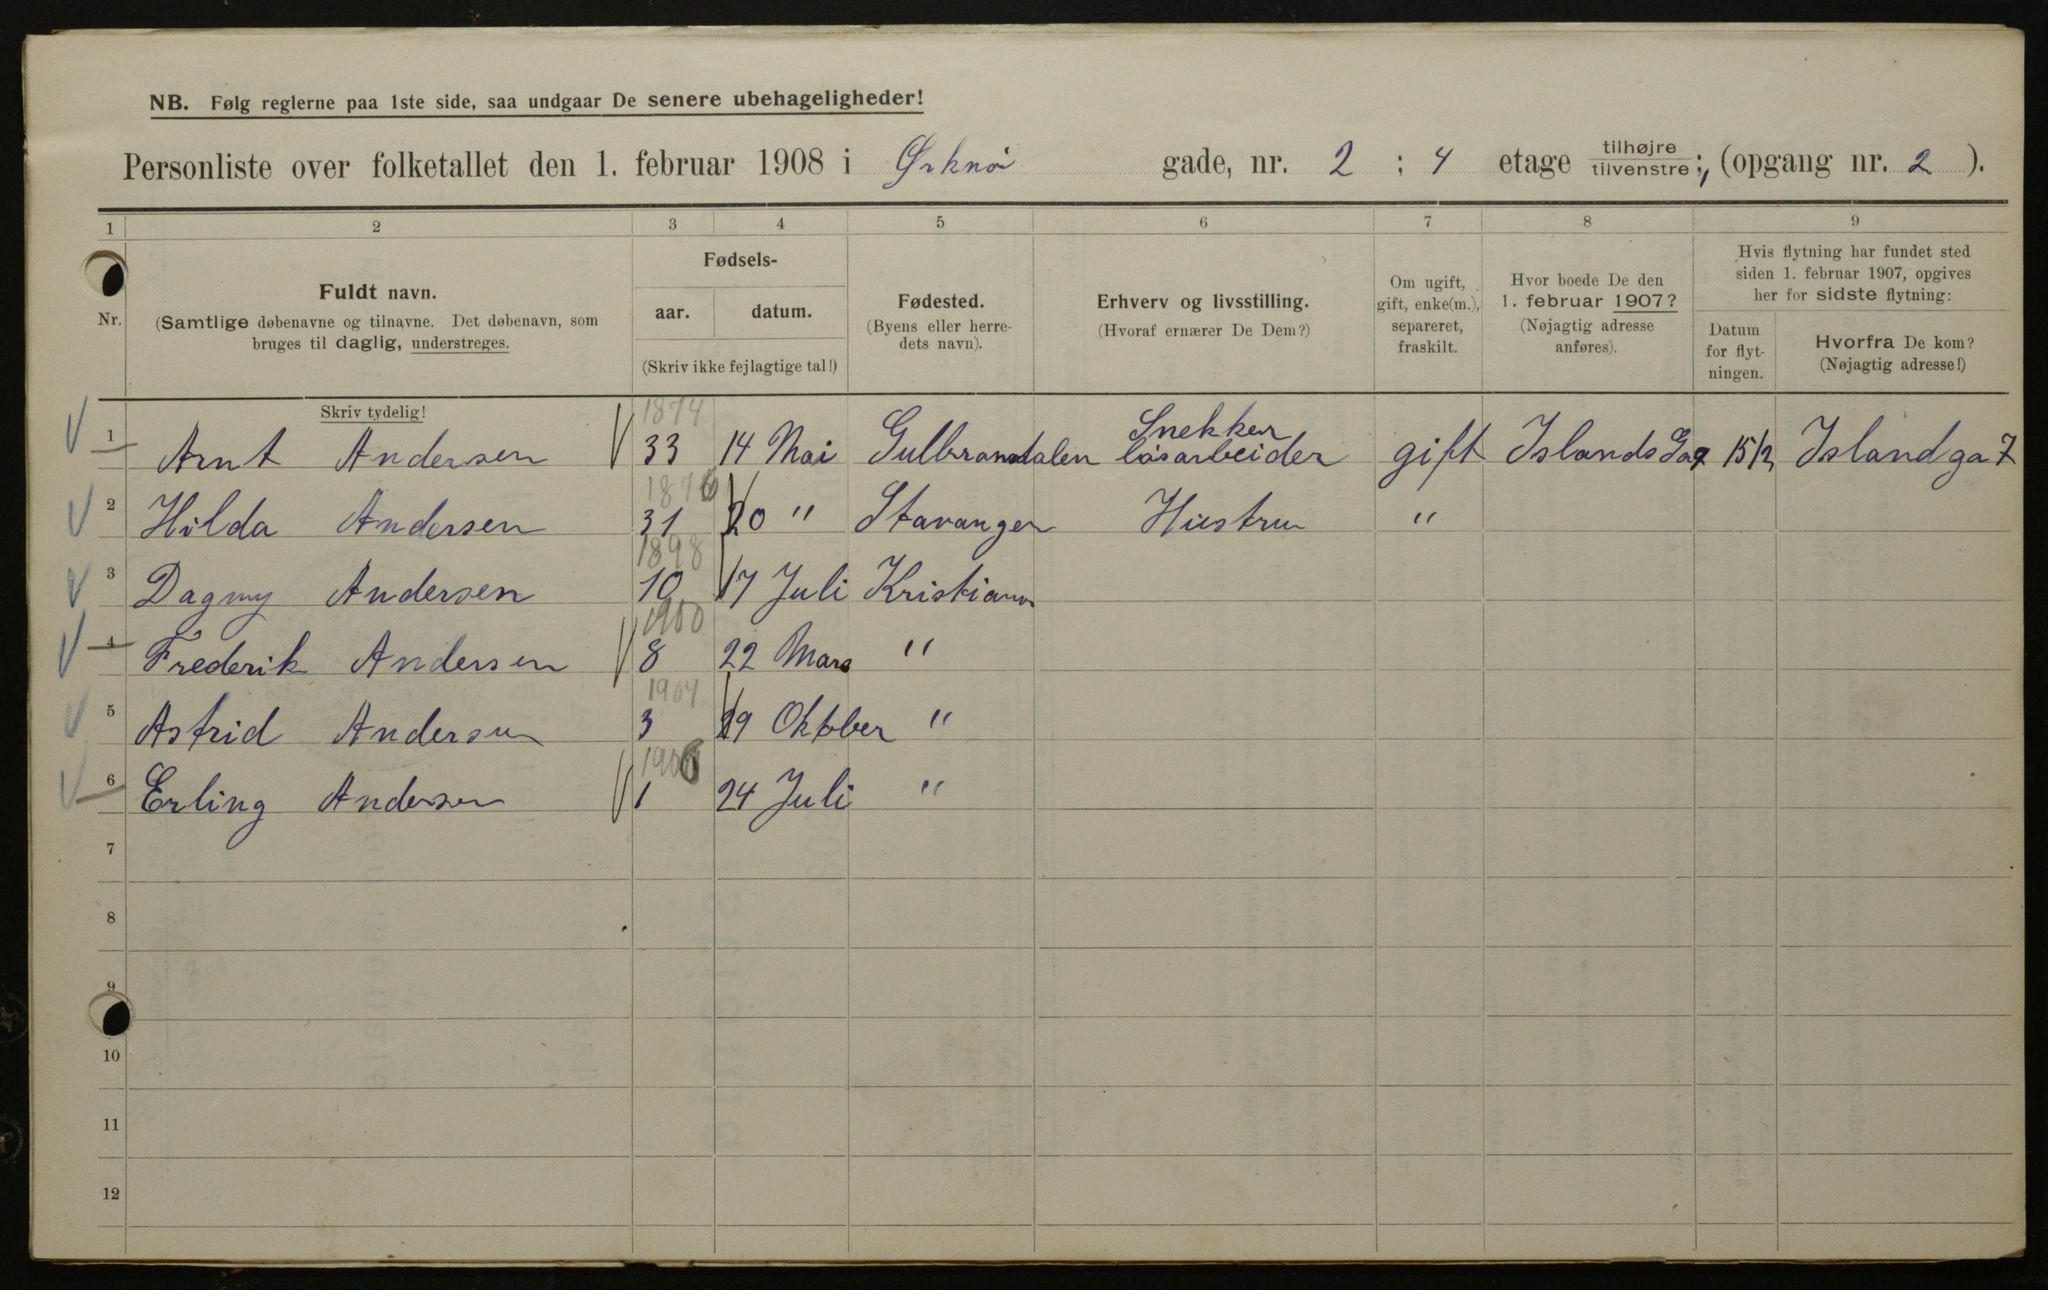 NB. Følg reglerne paa 1ste side, saa undgaar De senere ubehageligheder!
Personliste over folketallet den 1. februar 1908 i Ørknö gade, nr. 2 ; 4 etage tilhøjre / tilvenstre ;, (opgang nr. 2 ).
1 2 3 4 5 6 7 8 9
Nr.
Fuldt navn.
(Samtlige døbenavne og tilnavne. Det døbenavn, som
bruges til daglig, understreges.
Skriv tydelig!
Fødsels-
aar. datum.
(Skriv ikke fejlagtige tal!)
Fødested.
(Byens eller herre-
dets navn).
Erhverv og livsstilling.
(Hvoraf ernærer De Dem?)
Om ugift,
gift, enke(m.),
separeret,
fraskilt.
Hvor boede De den
1. februar 1907?
(Nøjagtig adresse
anføres).
Hvis flytning har fundet sted
siden 1. februar 1907, opgives
her for sidste flytning:
Datum
for flyt-
ningen.
Hvorfra De kom?
(Nøjagtig adresse!)
1874 Snekker
1 Arnt Andersen 33 14 Mai Gulbransdalen løsarbeider gift Islands Ga 7 15/2 Islandga 7
1876
2 Hilda Andersen 31 20 " Stavanger Hustru "
1898
3 Dagmy Andersen 10 17 Juli Kristiania
1900
4 Frederik Andersen 8 22 Mars "
1904
5 Astrid Andersen 3 29 Oktober "
1906
6 Erling Andersen 1 24 Juli "
7
8
9
10
11
12